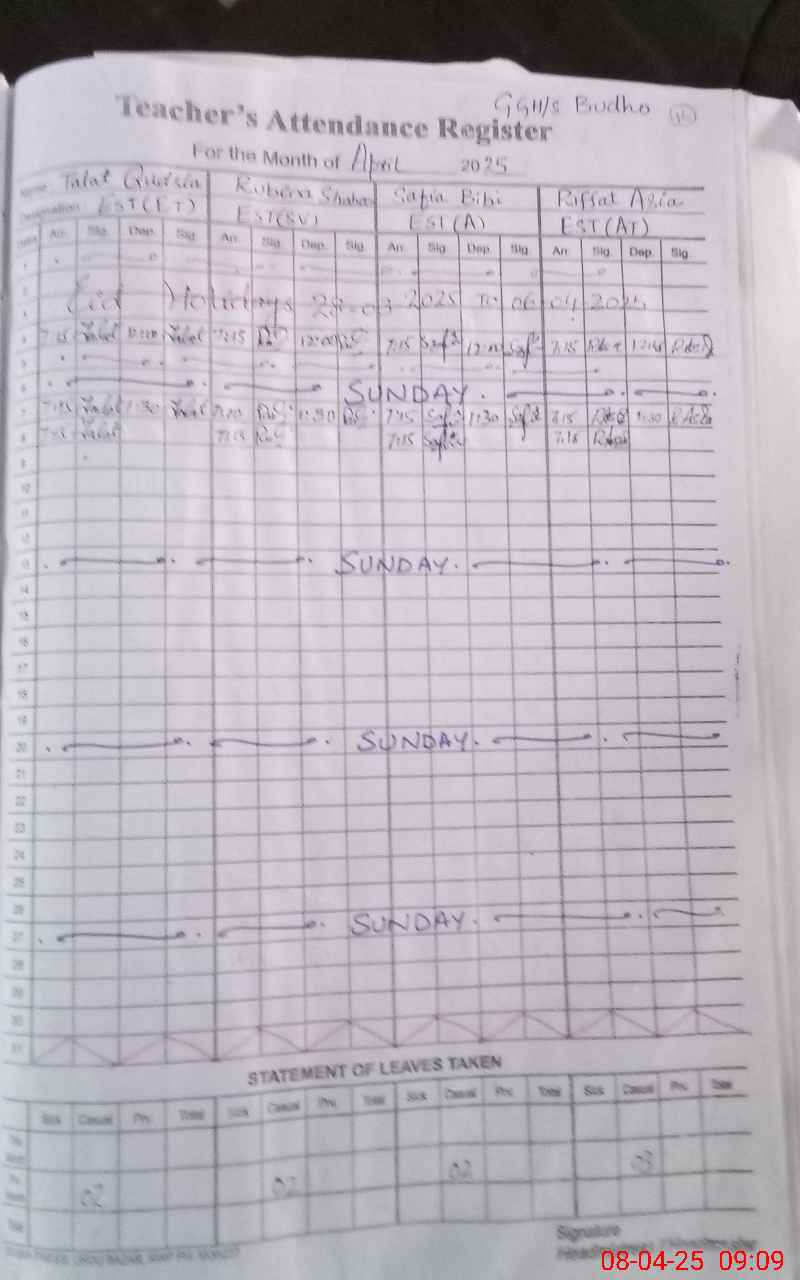 GGH/S Budho
Teacher's Attendance Register
For the Month of April 2025
Name Talat Qudsia Rubina Shaha Safia Bibi Riffat Asia
Designation EST(ET) EST(SV) EST(A) EST(AT)
Date Arr. Sig. Dep. Sig. Arr. Sig. Dep. Sig. Arr. Sig. Dep. Sig. Arr. Sig. Dep. Sig.
1
2 Eid Holidays 28-03 2025 To 06 04 2025
3
4 7:15 Talat 12:00 Talat 7:15 12:00 7:15 12:00 7:15
5
6 SUNDAY.
7 Talat 1:30 Talat 1:30 7:15 1:30 7:15 1:30
8 7:15 Talat 7:15 7:15 7:15
9
10
11
12
13 SUNDAY.
14
15
16
17
18
19
20 SUNDAY.
21
22
23
24
25
26
27 SUNDAY.
28
29
30
31
STATEMENT OF LEAVES TAKEN
Sick Casual Prv. Total Sick Casual Prv. Total Sick Casual Prv. Total Sick Casual Prv. Total
02 02 02 03
Total
Signature
08-04-25 09:09